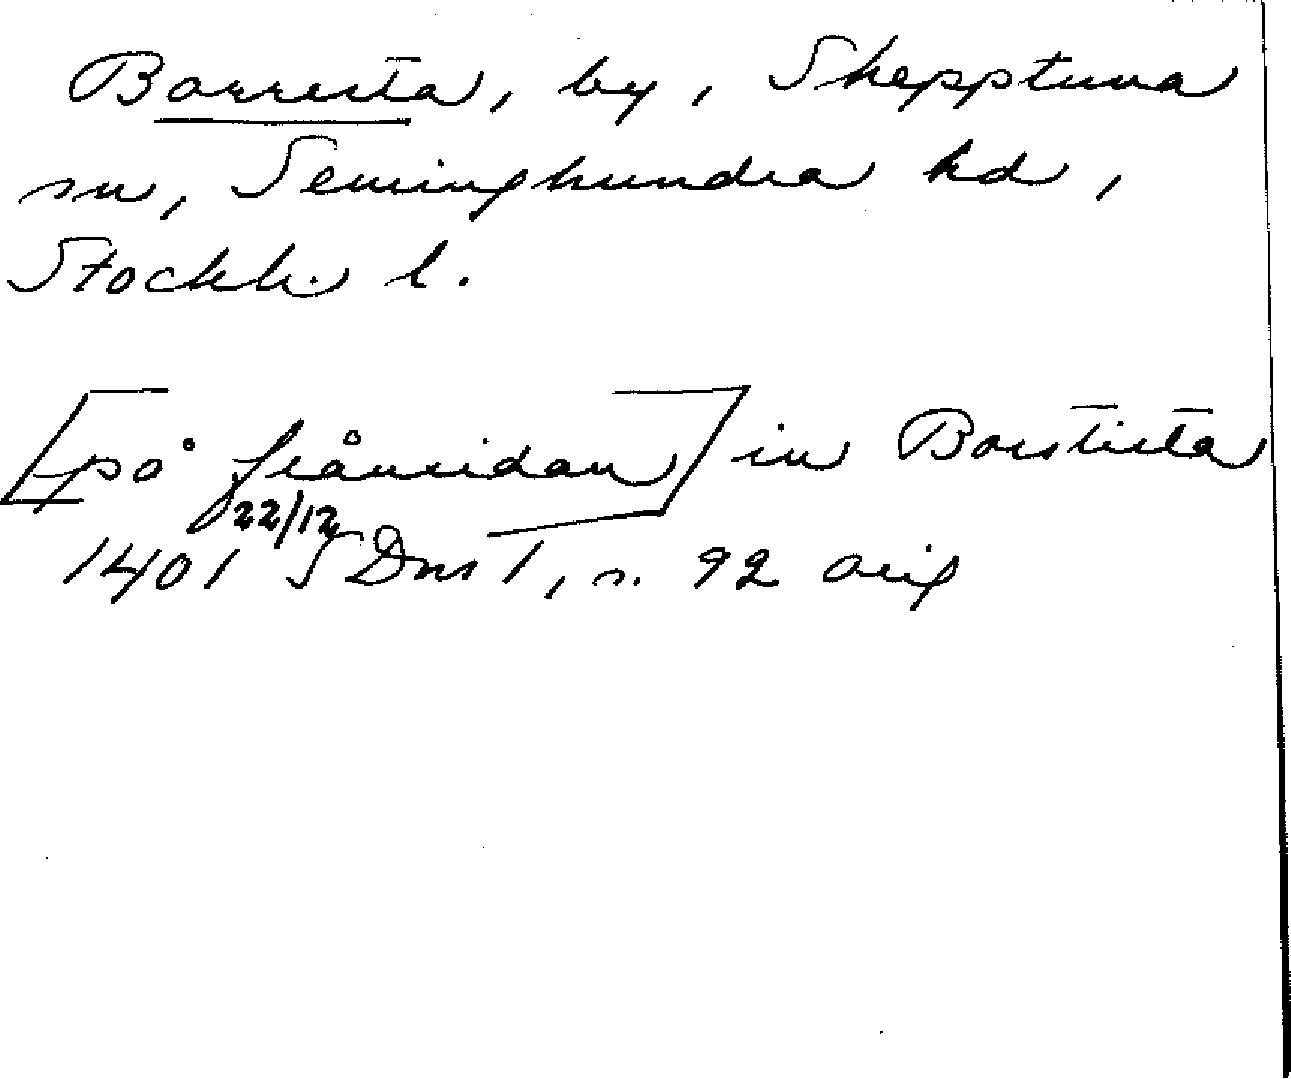 Borresta, by, Skepptuna
sn, Seminghundra hd,
Stockh. l.
[på frånsidan] in Borstista
1401 22/12 SDns I, s. 92 orig